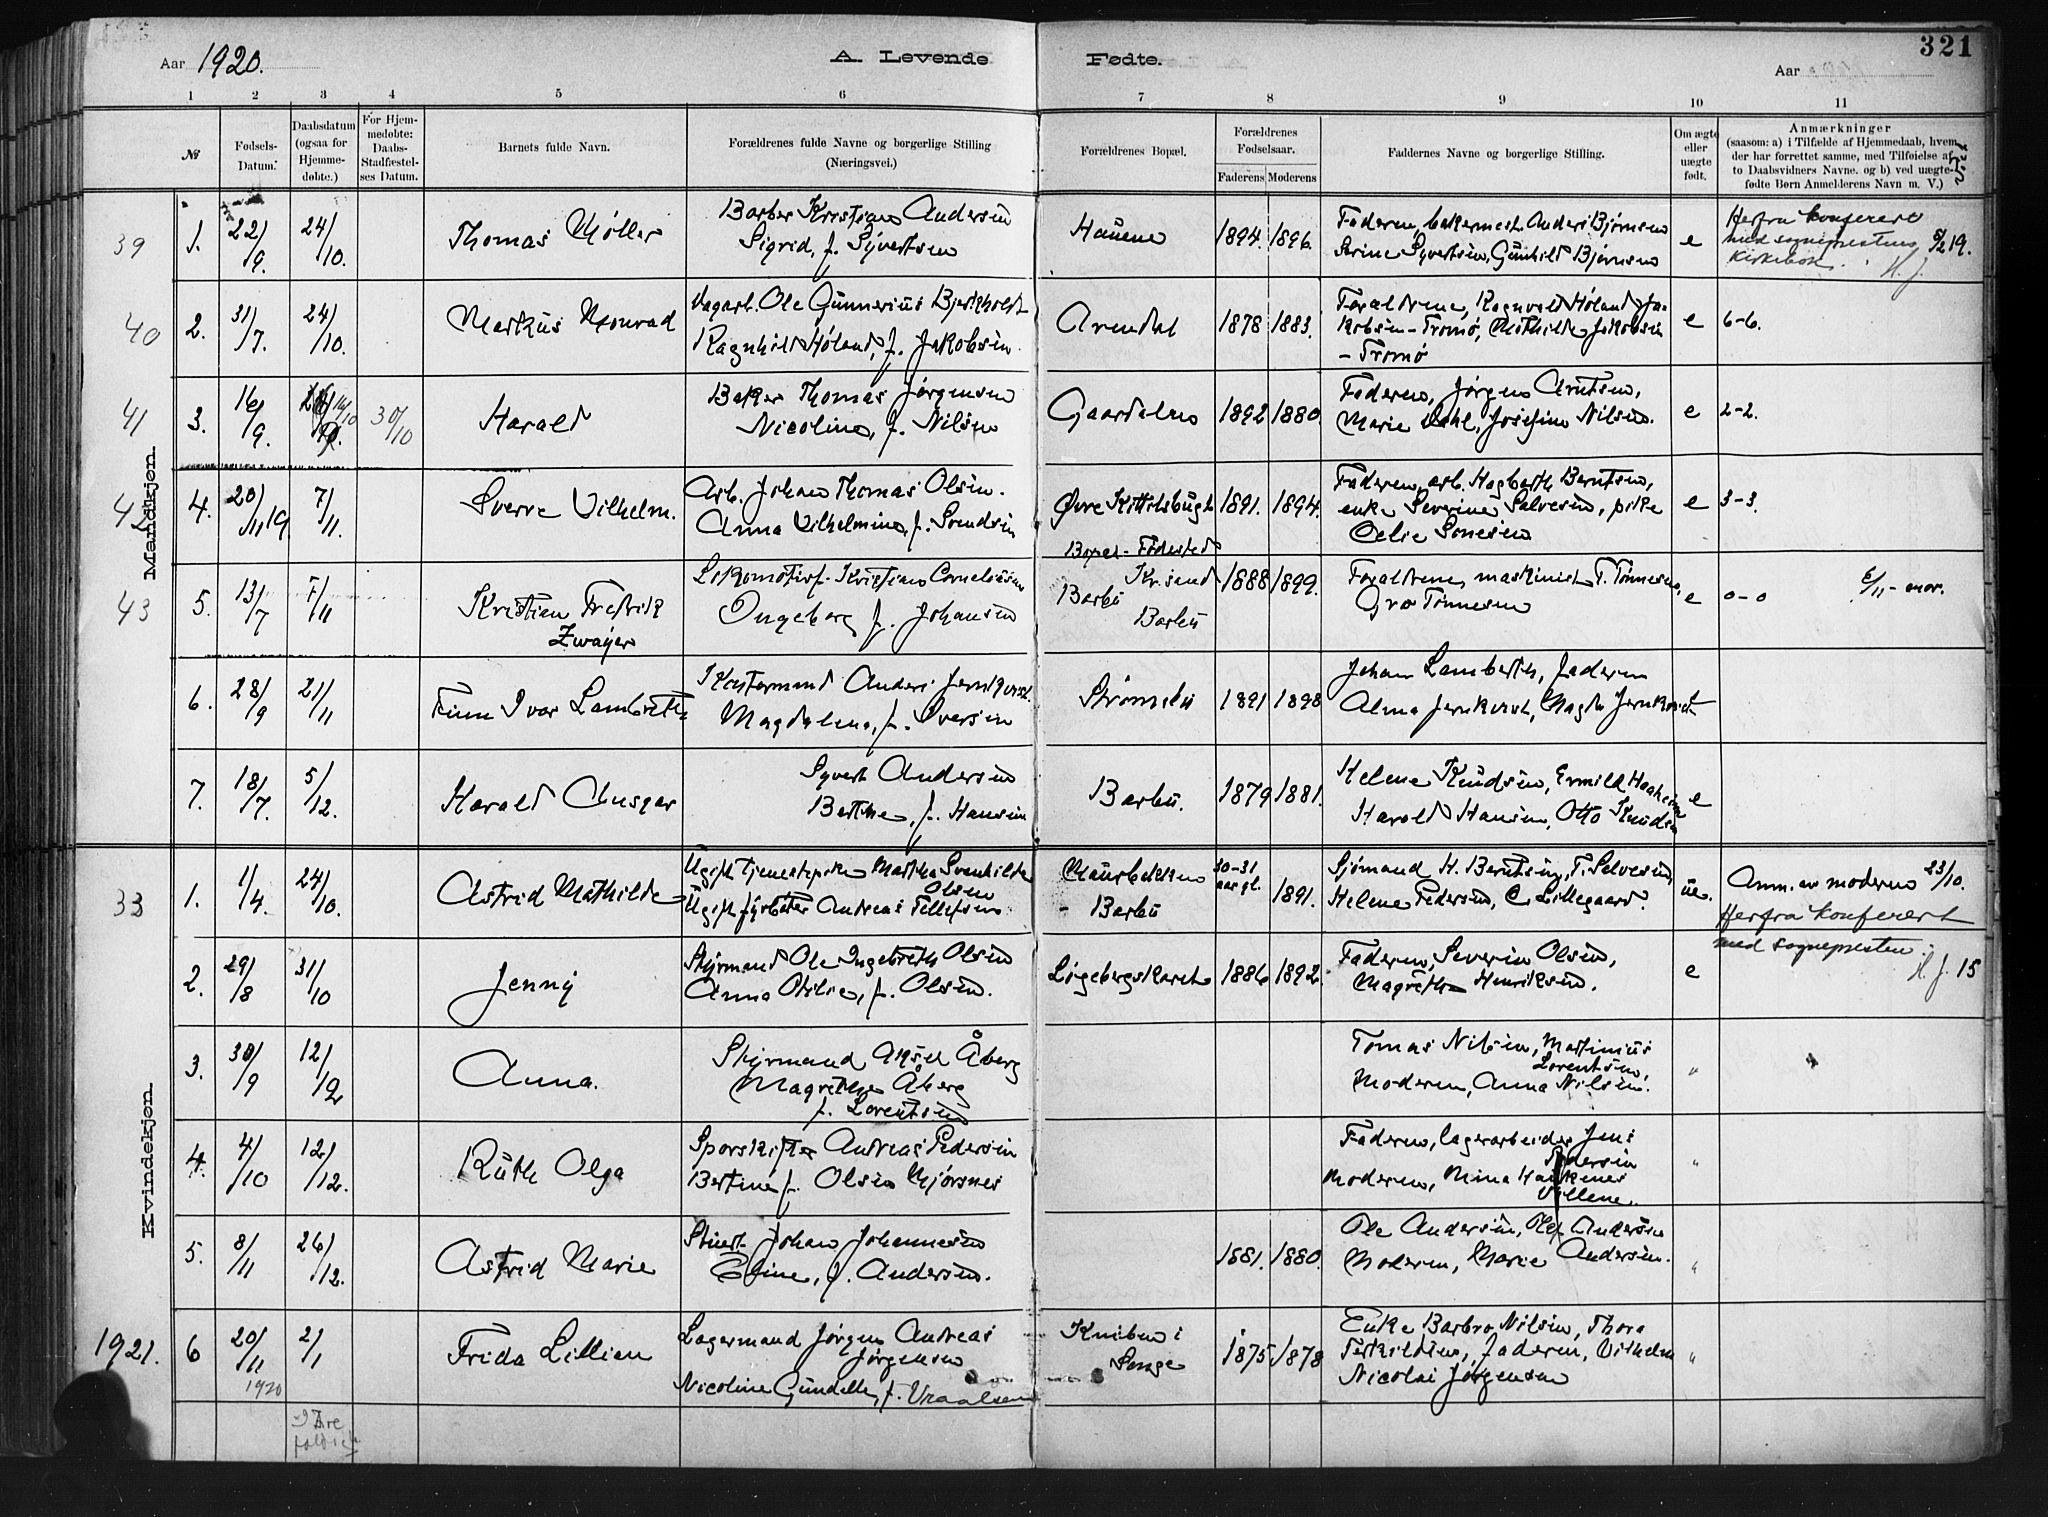 321
Aar 1920.
A. Levende Fødte.
Aar
1 2 3 4 5 6 7 8 9 10 11
№
Fødsels-
Datum.
Daabsdatum
(ogsaa for
Hjemme-
døbte.)
For Hjem-
medøbte:
Daabs-
Stadfæstel-
ses Datum.
Barnets fulde Navn.
Forældrenes fulde Navne og borgerlige Stilling
(Næringsvei.)
Forældrenes Bopæl.
Forældrenes
Fødselsaar.
Faderens Moderens
Faddernes Navne og borgerlige Stilling.
Om ægte
eller
uægte
født.
Anmærkninger
(saasom: a) i Tilfælde af Hjemmedaab, hvem
der har forrettet samme, med Tilføielse af
to Daabsvidners Navne. og b) ved uægte-
fødte Børn Anmelderens Navn m. V.)
Mandkjøn.
39 1. 22/9. 24/10. Thomas Møller
Barber Kristian Andersen
Sigrid, f. Syvertsen
Hauene 1894. 1896.
Faderen, bakermest. Anders Bjørnsen
Serine Syvertsen, Gunhild Bjørnsen
e
Herfra konferert
med sogneprestens
kirkebok. H. J.
5/2 19.
40 2. 31/7. 24/10. Markus Monrad
Vognarb. Ole Gunnerius Bjerkholt
Ragnhild Høland, f. Jakobsen
Arendal 1878 1883.
Forældrene, Ragnvald Høland Ja-
kobsen - Tromø, Mathilde Jakobsen
- Tromø
e 6-6.
41 3. 16/9. 16/10 30/10 Harald
Baker Thomas Jørgensen
Nicoline, f. Nilsen
Gaardalen 1892 1880.
Faderen, Jørgen Arntsen,
Marie Dahl, Josefine Nilsen.
e 2-2.
42 4. 20/11 19. 7/11. Sverre Vilhelm.
Arb. Johan Thomas Olsen.
Anna Vilhelmine, f. Svendsen
Øvre Kittelsbugt 1891. 1894.
Faderen, arb. Hagbarth Berntsen,
enke Severine Salvesen, pike
Oelie Sonesen
e 3-3.
43 5. 13/7 7/11 Kristian Fredrik
Zwayer
Lokomotivf. Kristian Corneliussen
Ingeborg f. Johansen
Bopæl - Fødested
Kr.sand
Barbu
Barbu
1888 1899.
Forældrene, maskinist T. Tønnesen,
Gro Tønnesen
e 0-0 6/11 - mor.
6. 28/9 21/11 Finn Ivar Lambrethe
Kontormand Anders Jernkvist
Magdalena, f. Iversen
Strømsbu 1891 1898
Johan Lamberth, faderen
Alma Jernkvist, Magda Jernkvist
7. 18/7. 5/12. Harald Ansgar
Syvert Andersen
Berthe, f. Hansen
Barbu. 1879 1881.
Helene Knudsen, Ermild Haaheim
Harald Hansen, Otto Knudsen
e
Kvindekjøn.
33 1. 1/4. 24/10. Astrid Mathilde
Ugift tjenestepike Martha Svenhilde
Olsen
Ugift fyrbøter Andreas Tellefsen
Maurbekken
- Barbu
30-31
aar gl. 1891.
Sjømand H. Berntsen, T. Salvesen,
Helene Pedersen, C. Lillegaard.
ue.
Anm. av moderen 23/10.
Herfra konferert
med sognepresten
H. J. 15
2. 29/8 31/10 Jenny
Styrmand Ole Ingebreth Olsen
Anna Otilie, f. Olsen.
Løgebergskaret 1886 1892.
Faderen, Severin Olsen,
Magrethe Henriksen.
e
3. 30/9 12/12 Anna.
Styrmand Aksel Åberg
Magrethe Åberg
f. Lorentsen
Tomas Nilsen, Martinius
Lorentsen,
Moderen, Anna Nilsen.
"
4. 4/10 12/12. Ruth Olga
Sporskifter Andreas Pedersen
Bertine f. Olsen Mjørsnes
Faderen, lagerarbeider Jens
Pedersen
Moderen, Mina Haukenes
Villene.
"
5. 8/11 26/12. Astrid Marie
Stuert Johan Johannesen
Eline, f. Andersen.
1881. 1880.
Ole Andersen, Olaf Andersen
Moderen, Marie Andersen.
"
1921. 6 20/11 1920 2/1 Frida Lillian
Lagermand Jørgen Andreas
Jørgensen
Nicoline Gundella, f. Vraalsen
Kniben i
Songe
1875 1878
Enke Barbro Nilsen, Thora
Terkildsen, faderen, Vilhelm
Nicolai Jørgensen
"